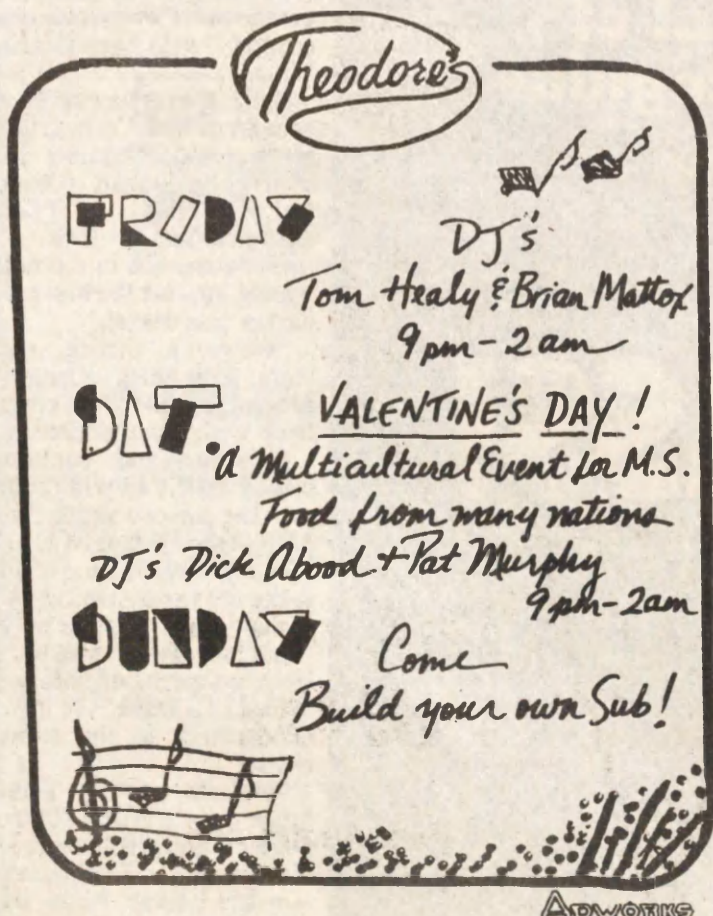 Theodore's
FRIDAY
DJ's
Tom Healy & Brian Mattox
9 pm - 2 am
SAT.
VALENTINE'S DAY!
a Multicultural Event for M.S.
Food from many nations
DJ's Dick Abood + Pat Murphy
9 pm - 2 am
SUNDAY
Come
Build your own Sub!
ADWORKS